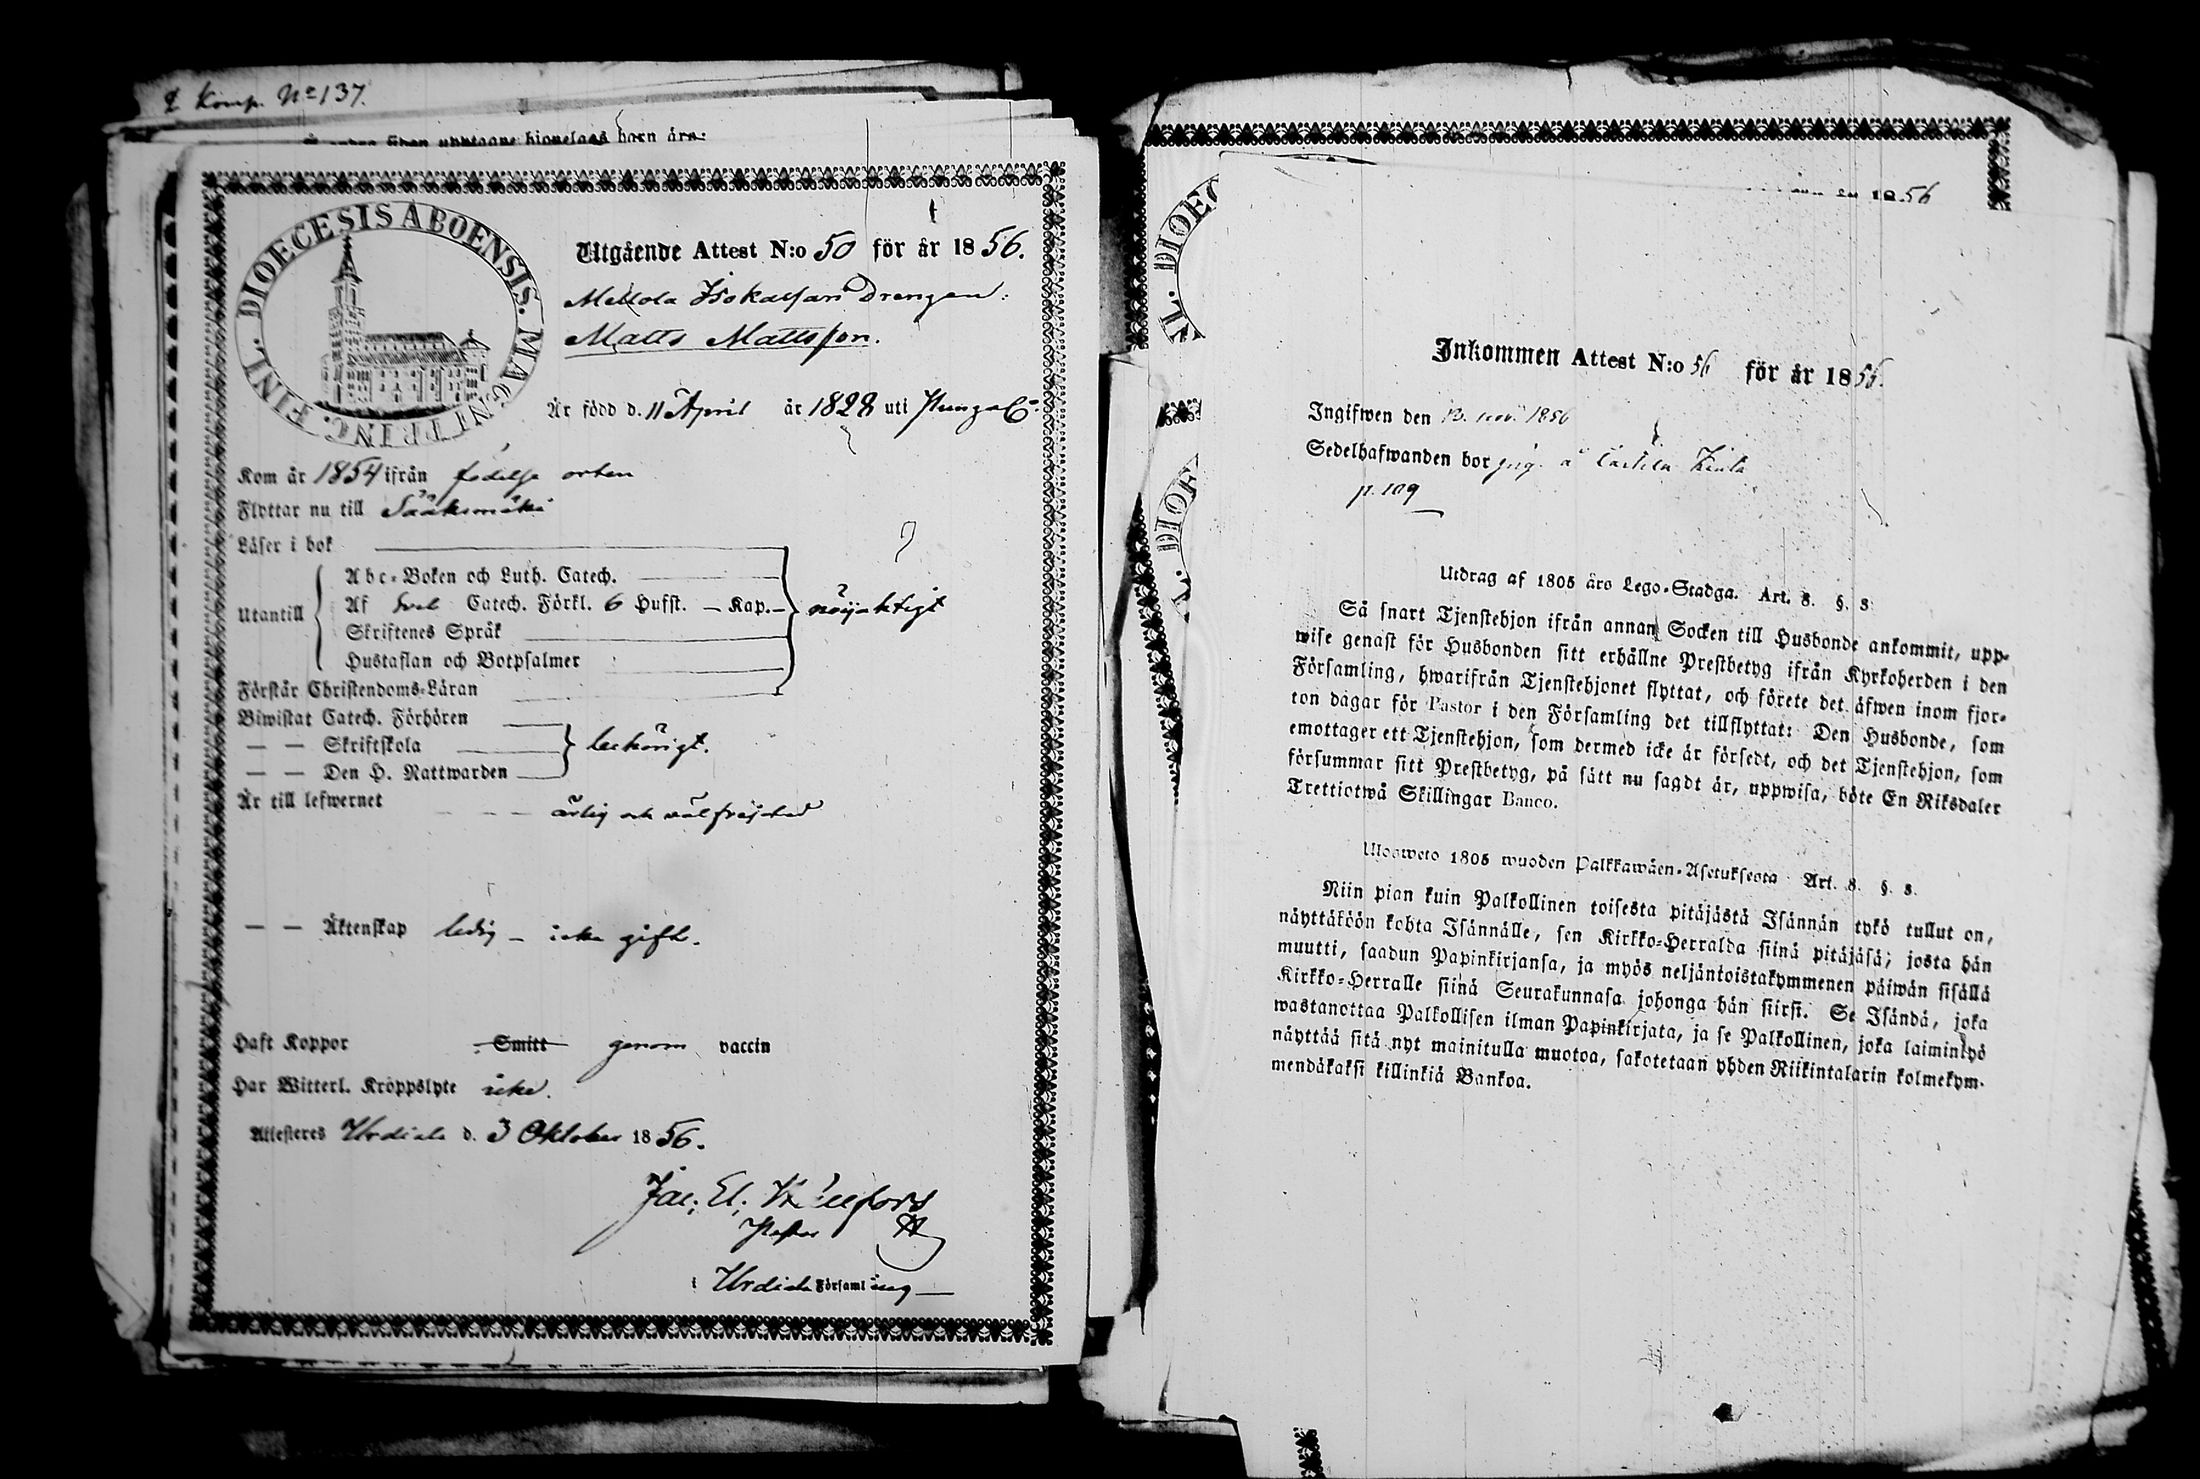 Komp. No 137.
DIOECESIS ABOENSIS. MAGNI PRINC. FINL.
Utgående Attest N:o 50 för år 1856.
Mellola Isokassari Drengen:
Matts Mattsson.
Är född d. 11 April år 1828 uti
Kom år 1854 ifrån födelse orten
Flyttar nu till Sääksmäki
Läser i bok
Utantill
Abc-Boken och Luth. Catech.
Af Svel Catech. Förkl. 6 Hufst. — Kap. — nöijaktigt
Skriftenes Språk
Hustaflan och Botpsalmer
Förstår Christendoms-Läran
Biwistat Catech. Förhören
— — Skriftskola behörigt.
— — Den H. Nattwarden
Är till lefwernet
ärlig och välfrejdad
— — Äktenskap ledig — icke gift.
Haft Koppor Smitt genom vaccin
Har Witterl. Kroppslyte icke.
Attesteras Urdiala d. 3 Oktober 1856.
Jac; El;
Pastor
i Urdiala Församling
1856
Inkommen Attest N:o 56 för år 1856.
Ingifwen den 13. nov. 1856
Sedelhafwanden bor
p. 109
Utdrag af 1805 års Lego-Stadga. Art. 8. §. 3
Så snart Tjenstehjon ifrån annan Socken till Husbonde ankommit, upp-
wise genast för Husbonden sitt erhållne Prestbetyg ifrån Kyrkoherden i den
Församling, hwarifrån Tjenstehjonet flyttat, och förete det äfwen inom fjor-
ton dagar för Pastor i den Församling det tillflyttat: Den Husbonde, som
emottager ett Tjenstehjon, som dermed icke är försedt, och det Tjenstehjon, som
försummar sitt Prestbetyg, på sätt nu sagdt är, uppwisa, böte En Riksdaler
Trettiotwå Skillingar Banco.
Ulosweto 1805 wuoden Palkkawäen-Asetuksesta Art. 8. §. 3.
Niin pian kuin Palkollinen toisesta pitäjästä Isännän tykö tullut on,
näyttäköön kohta Isännälle, sen Kirkko-Herralda siinä pitäjäsä; josta hän
muutti, saadun Papinkirjansa, ja myös neljäntoistakymmenen päiwän sisällä
Kirkko-Herralle siinä Seurakunnasa johonga hän siirsi. Se Isändä, joka
wastanottaa Palkollisen ilman Papinkirjata, ja se Palkollinen, joka laiminlyö
näyttää sitä nyt mainitulla muotoa, sakotetaan yhden Riikintalarin kolmekym-
mendäkaksi killinkiä Bankoa.